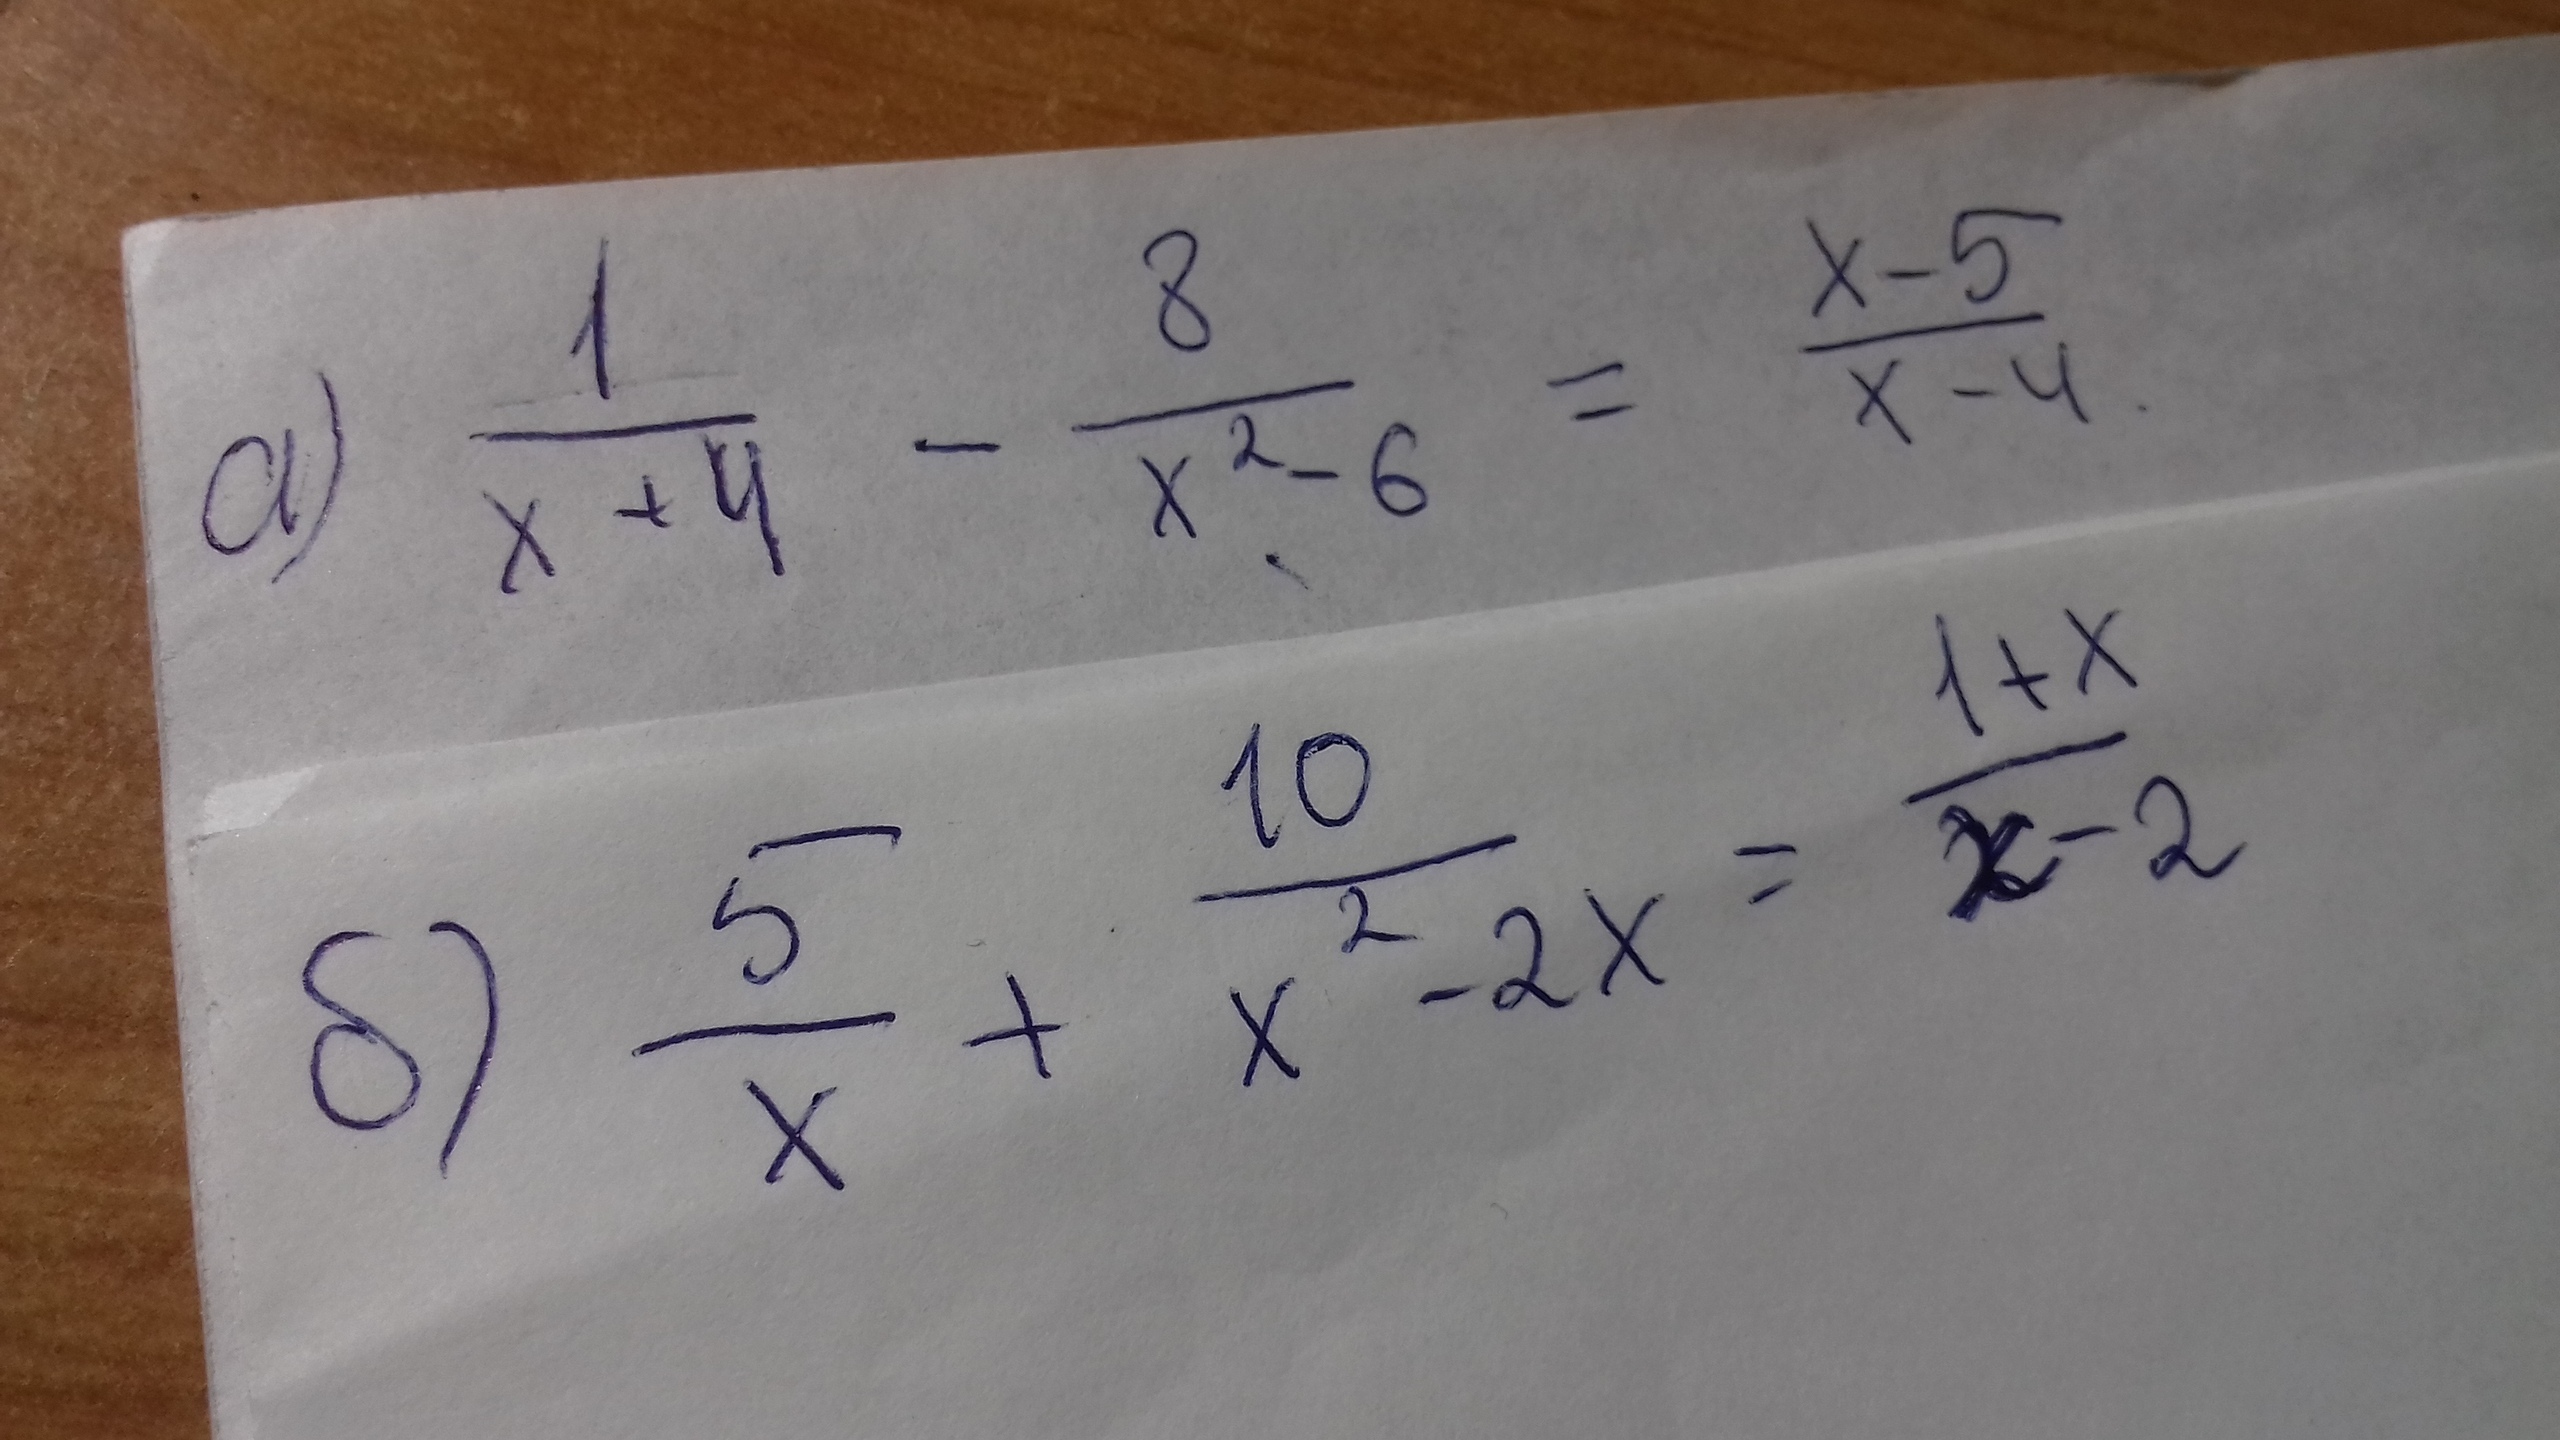 а) 1/(x+4) - 8/(x²-6) = (x-5)/(x-4)
б) 5/x + 10/(x²-2x) = (1+x)/(x-2)